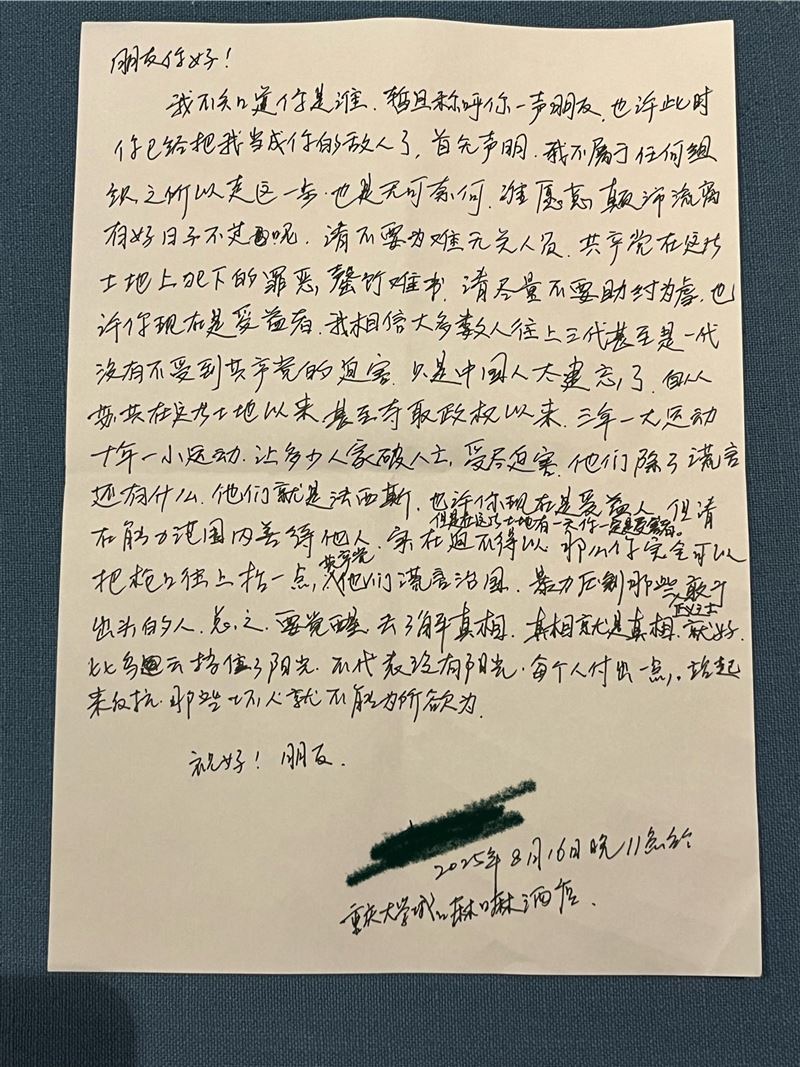 朋友你好！
我不知道你是谁、暂且称呼你一声朋友，也许此时
你已给把我当成你的敌人了，首先声明、我不属于任何组
织、之所以走这一步、也是无可奈何、谁愿意颠沛流离
有好日子不过呢、请不要为难无关人员、共产党在这片
土地上犯下的罪恶，罄竹难书、请尽量不要助纣为虐、也
许你现在是受益者、我相信大多数人往上三代甚至是一代
没有不受到共产党的迫害、只是中国人太健忘了、自从
苏共在这片土地以来、甚至夺取政权以来、三年一大运动
十年一小运动、让多少人家破人亡，受尽迫害、他们除了谎言
还有什么、他们就是法西斯、也许你现在是受益人、但请
但是在这片土地有一天你一定是受害者。
在能力范围内善待他人、实在迫不得以、那么你完全可以
共产党
把枪口往上抬一点，他们谎言治国、暴力压制那些敢于
正义之士
出头的人、总之、要觉醒、去了解真相、真相就是真相、就好
比乌云挡住了阳光、不代表没有阳光、每个人付出一点，站起
来反抗、那些坏人就不能为所欲为、
祝好！朋友、
2025年8月16日晚11点于
重庆大学城口麻口麻酒店、